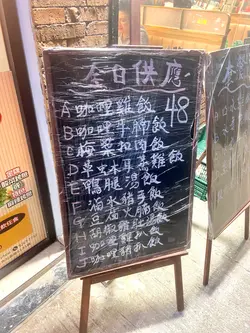 全日供應
A咖喱雞飯 48
B咖喱牛腩飯
C梅菜扣肉飯
D草虫木耳蒸雞飯
E鴨腿湯飯
F滷水豬手飯
G豆腐火腩飯
H胡椒豬肚湯飯
I咖喱雞扒飯
J咖喱豬扒飯